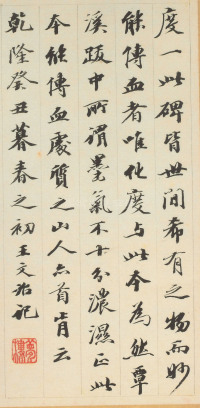 度一此碑皆世間希有之物而妙
能傳血者唯化度与此本為然覃
溪跋中所謂墨氣不十分濃濕正此
本能傳血處質之山人亦首肯云
乾隆癸丑暮春之初王文治記